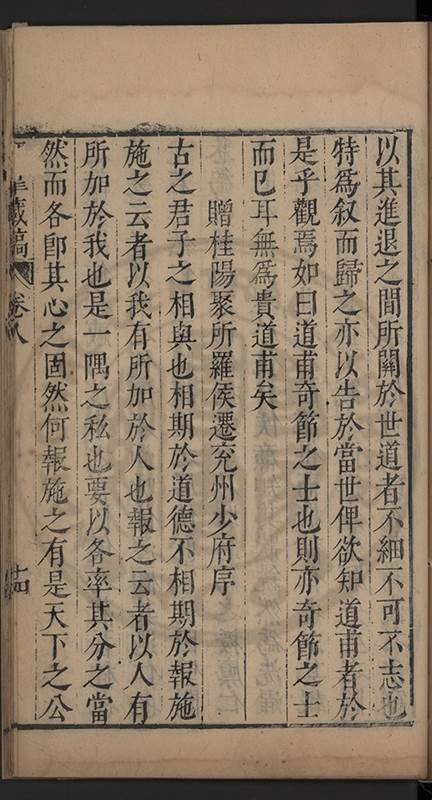 以其進退之間所關於世道者不細不可不志也
特為叙而歸之亦以告於當世俾欲知道甫者於
是乎觀焉如曰道甫奇節之士也則亦奇節之士
而已耳無為貴道甫矣
贈桂陽聚所羅侯遷兖州少府序
古之君子之相與也相期於道德不相期於報施
施之云者以我有所加於人也報之云者以人有
所加於我也是一隅之私也要以各率其分之當
然而各卽其心之固然何報施之有是天下之公
藏稿
卷八
十四